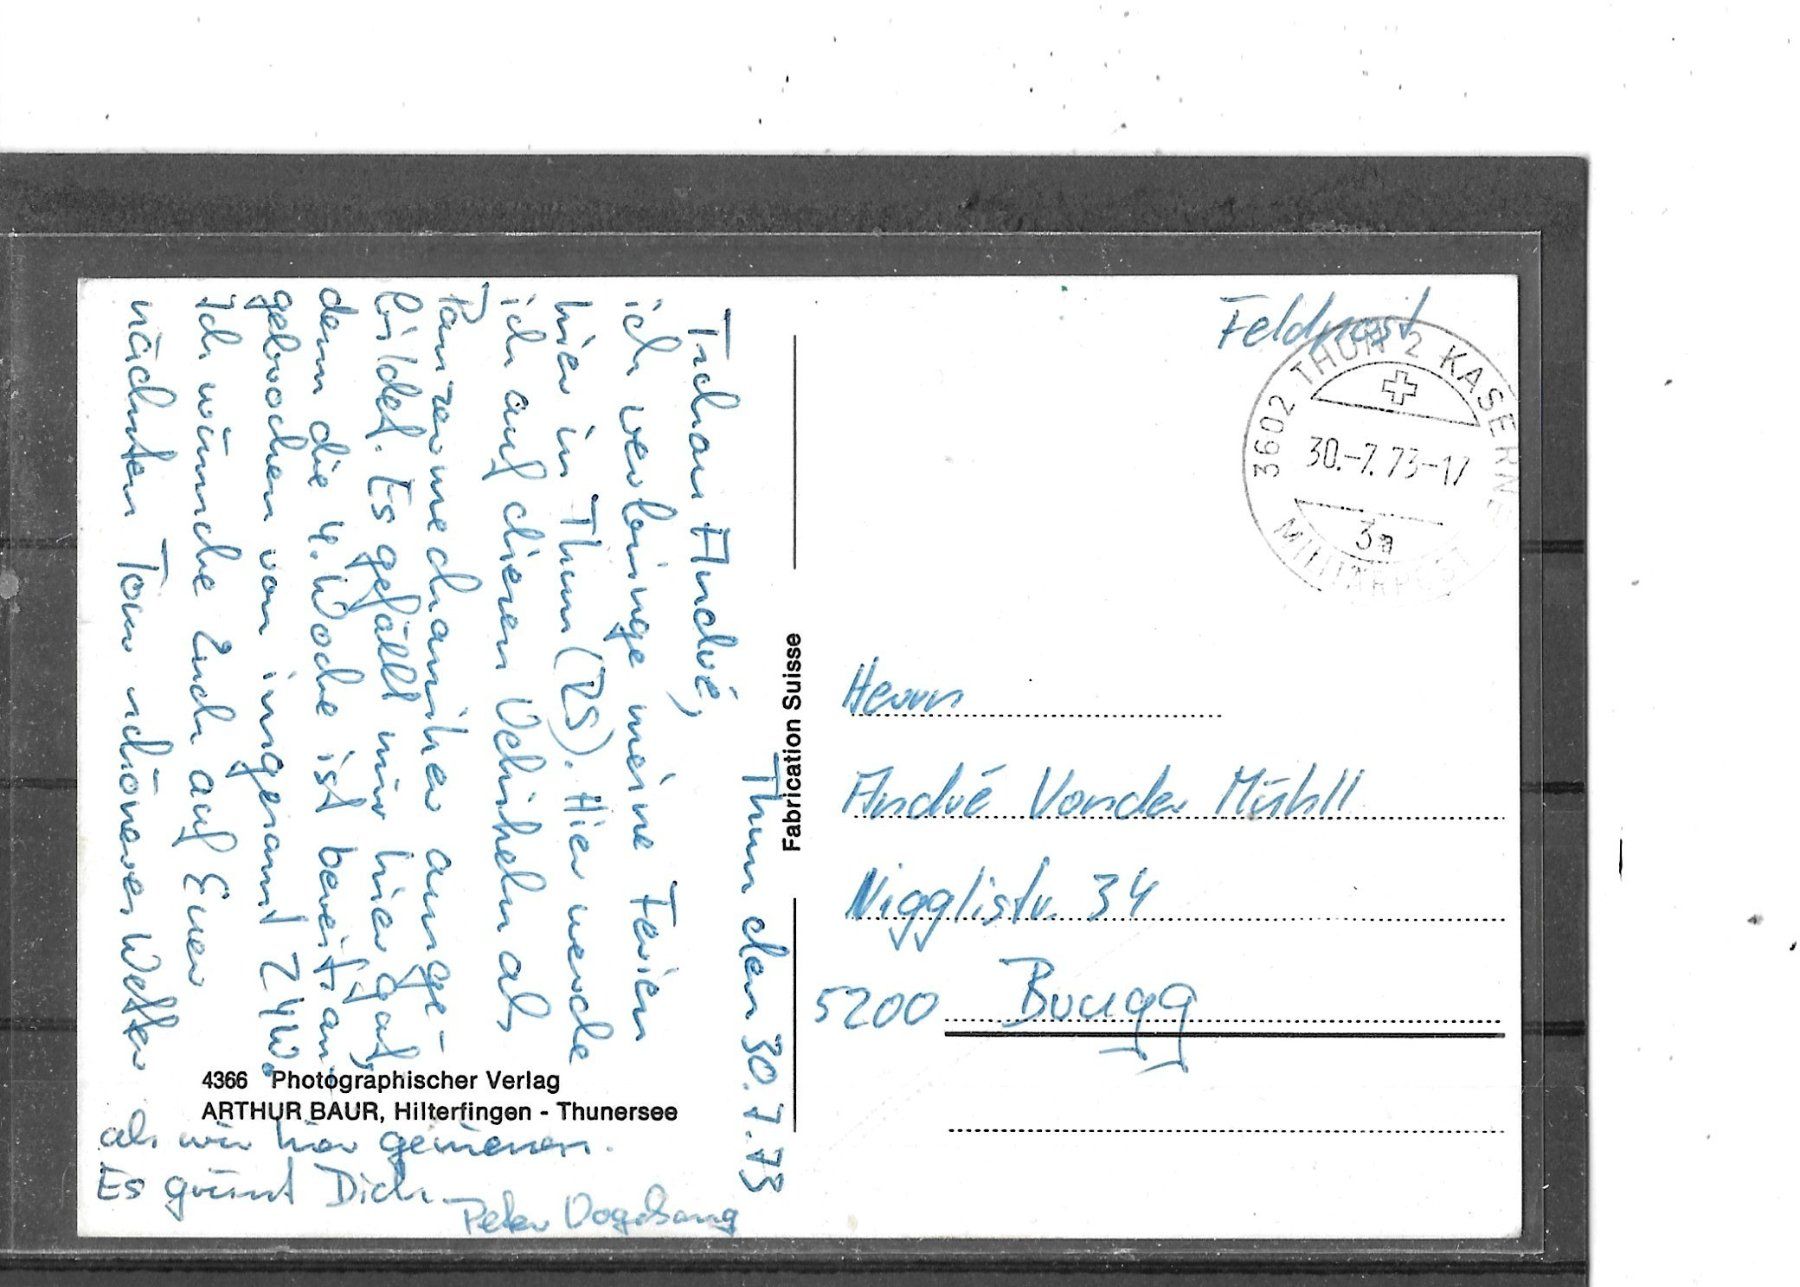 Thun den 30.7.73
Tschau André,
ich verbringe meine Ferien
hier in Thun (RS). Hier werde
ich auf diesen Vehikeln als
Panzermechaniker ausge-
bildet. Es gefällt mir hier gut,
denn die 4. Woche ist bereits an-
gebrochen von insgesamt 24 Wo.
Ich wünsche Euch auf Euer
nächsten Tour schöneres Wetter
als wir hier geniessen.
Es grüsst Dich
Peter Vogelsang
4366 Photographischer Verlag
ARTHUR BAUR, Hilterfingen - Thunersee
Fabrication Suisse
Feldpost
3602 THUN 2 KASERNE
30.-7.73-17
3a
MILITÄRPOST
Herrn
André Vonder Mühll
Nigglistr. 34
5200 Brugg